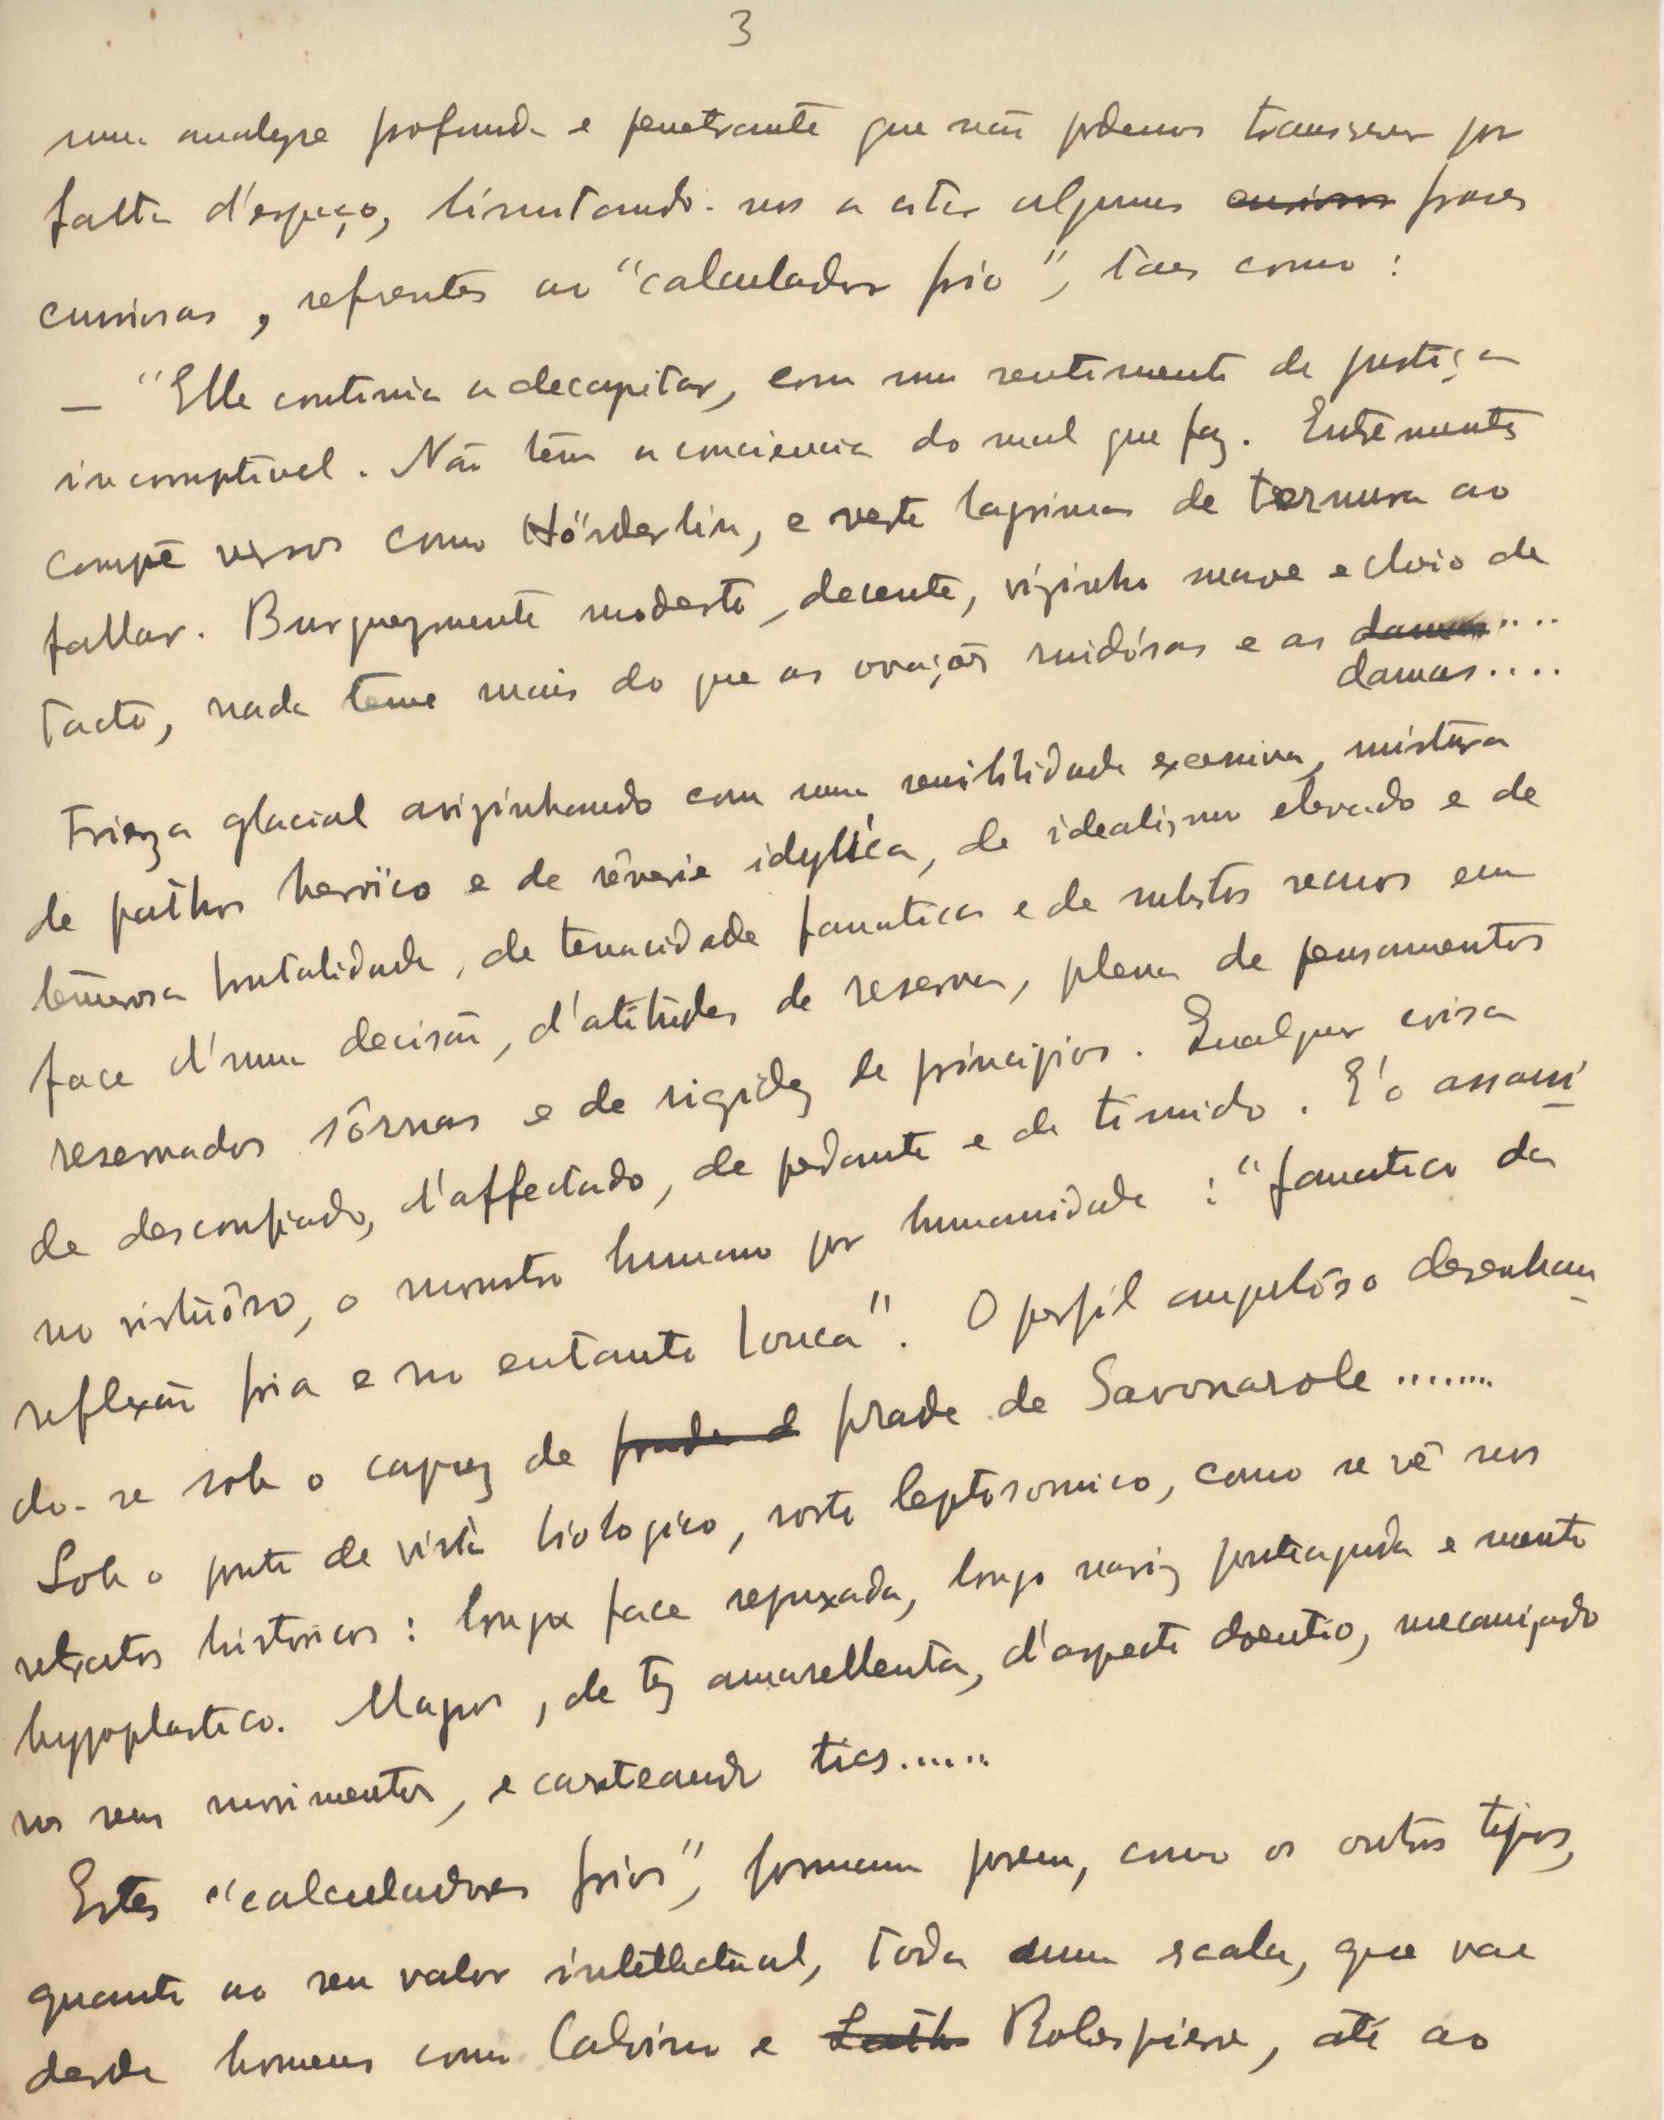 3
numa analyse profunda e penetrante que não podemos transcrever por
falta d'espaço, limitando-nos a citar algumas curiosas frases
curiosas, referentes ao "calculador frio", taes como:
— "Elle continúa a decapitar, com um sentimento de justiça
incorruptivel. Não têm a consciencia do mal que faz. Entrementes
compõe versos como Hölderlin, e verte lagrimas de ternura ao
fallar. Burguezmente modesto, decente, vizinho suave e cheio de
tacto, nada teme mais do que as ovações ruidósas e as damas....
damas....
Frieza glacial avizinhando com uma sensibilidade excessiva, mistura
de pathos heroïco e de rêverie idyllica, de idealismo elevado e de
temerosa brutalidade, de tenacidade fanatica e de subitos recuos em
face d'uma decisão, d'atitudes de reserva, plena de pensamentos
reservados sôrnas e de rigidez de principios. Qualquer coisa
de desconfiado, d'affectado, de pedante e de timido. E' o assassi
no virtuôso, o monstro humano por humanidade: "fanatico da
reflexão fria e no entanto louca". O perfil anguloso desenhan
do-se sob o capuz de frade d frade de Savonarole........
Sob o ponto de vista biologico, rosto leptosomico, como se vê nos
retratos historicos: longa face repuxada, longo nariz ponteaguda e mento
hypoplastico. Magro, de tez amarellenta, d'aspecto doentio, mecanizado
nos seus movimentos, e carateando tics......
Estes "calculadores frios", formam porem, como os outros tipos,
quanto ao seu valor intellectual, toda uma escala, que vae
desde homens como Calvino e Luth Robespierre, até ao